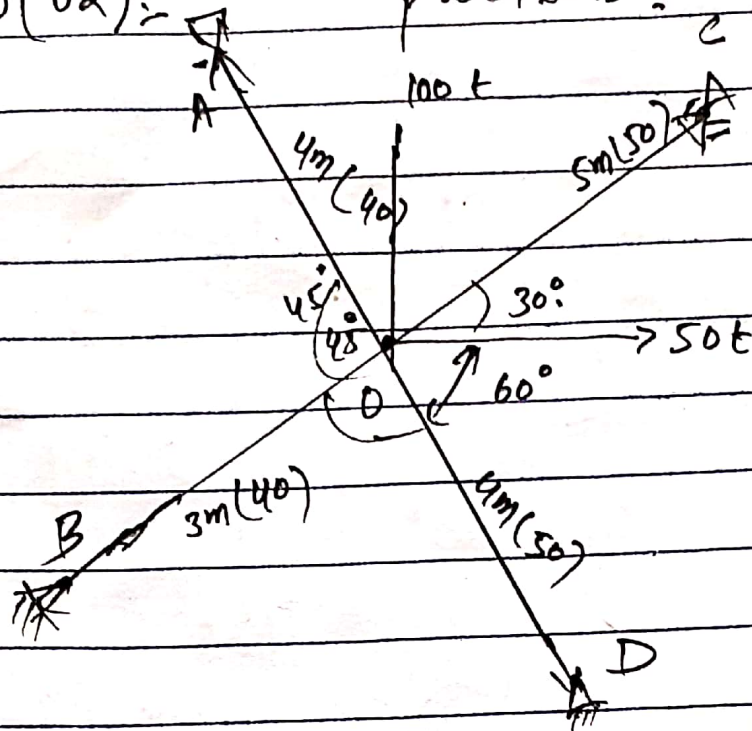 C
100 t
A
4m (40)
5m (50)
45°
45°
30°
50 t
O
60°
B
3m (40)
4m (50)
D